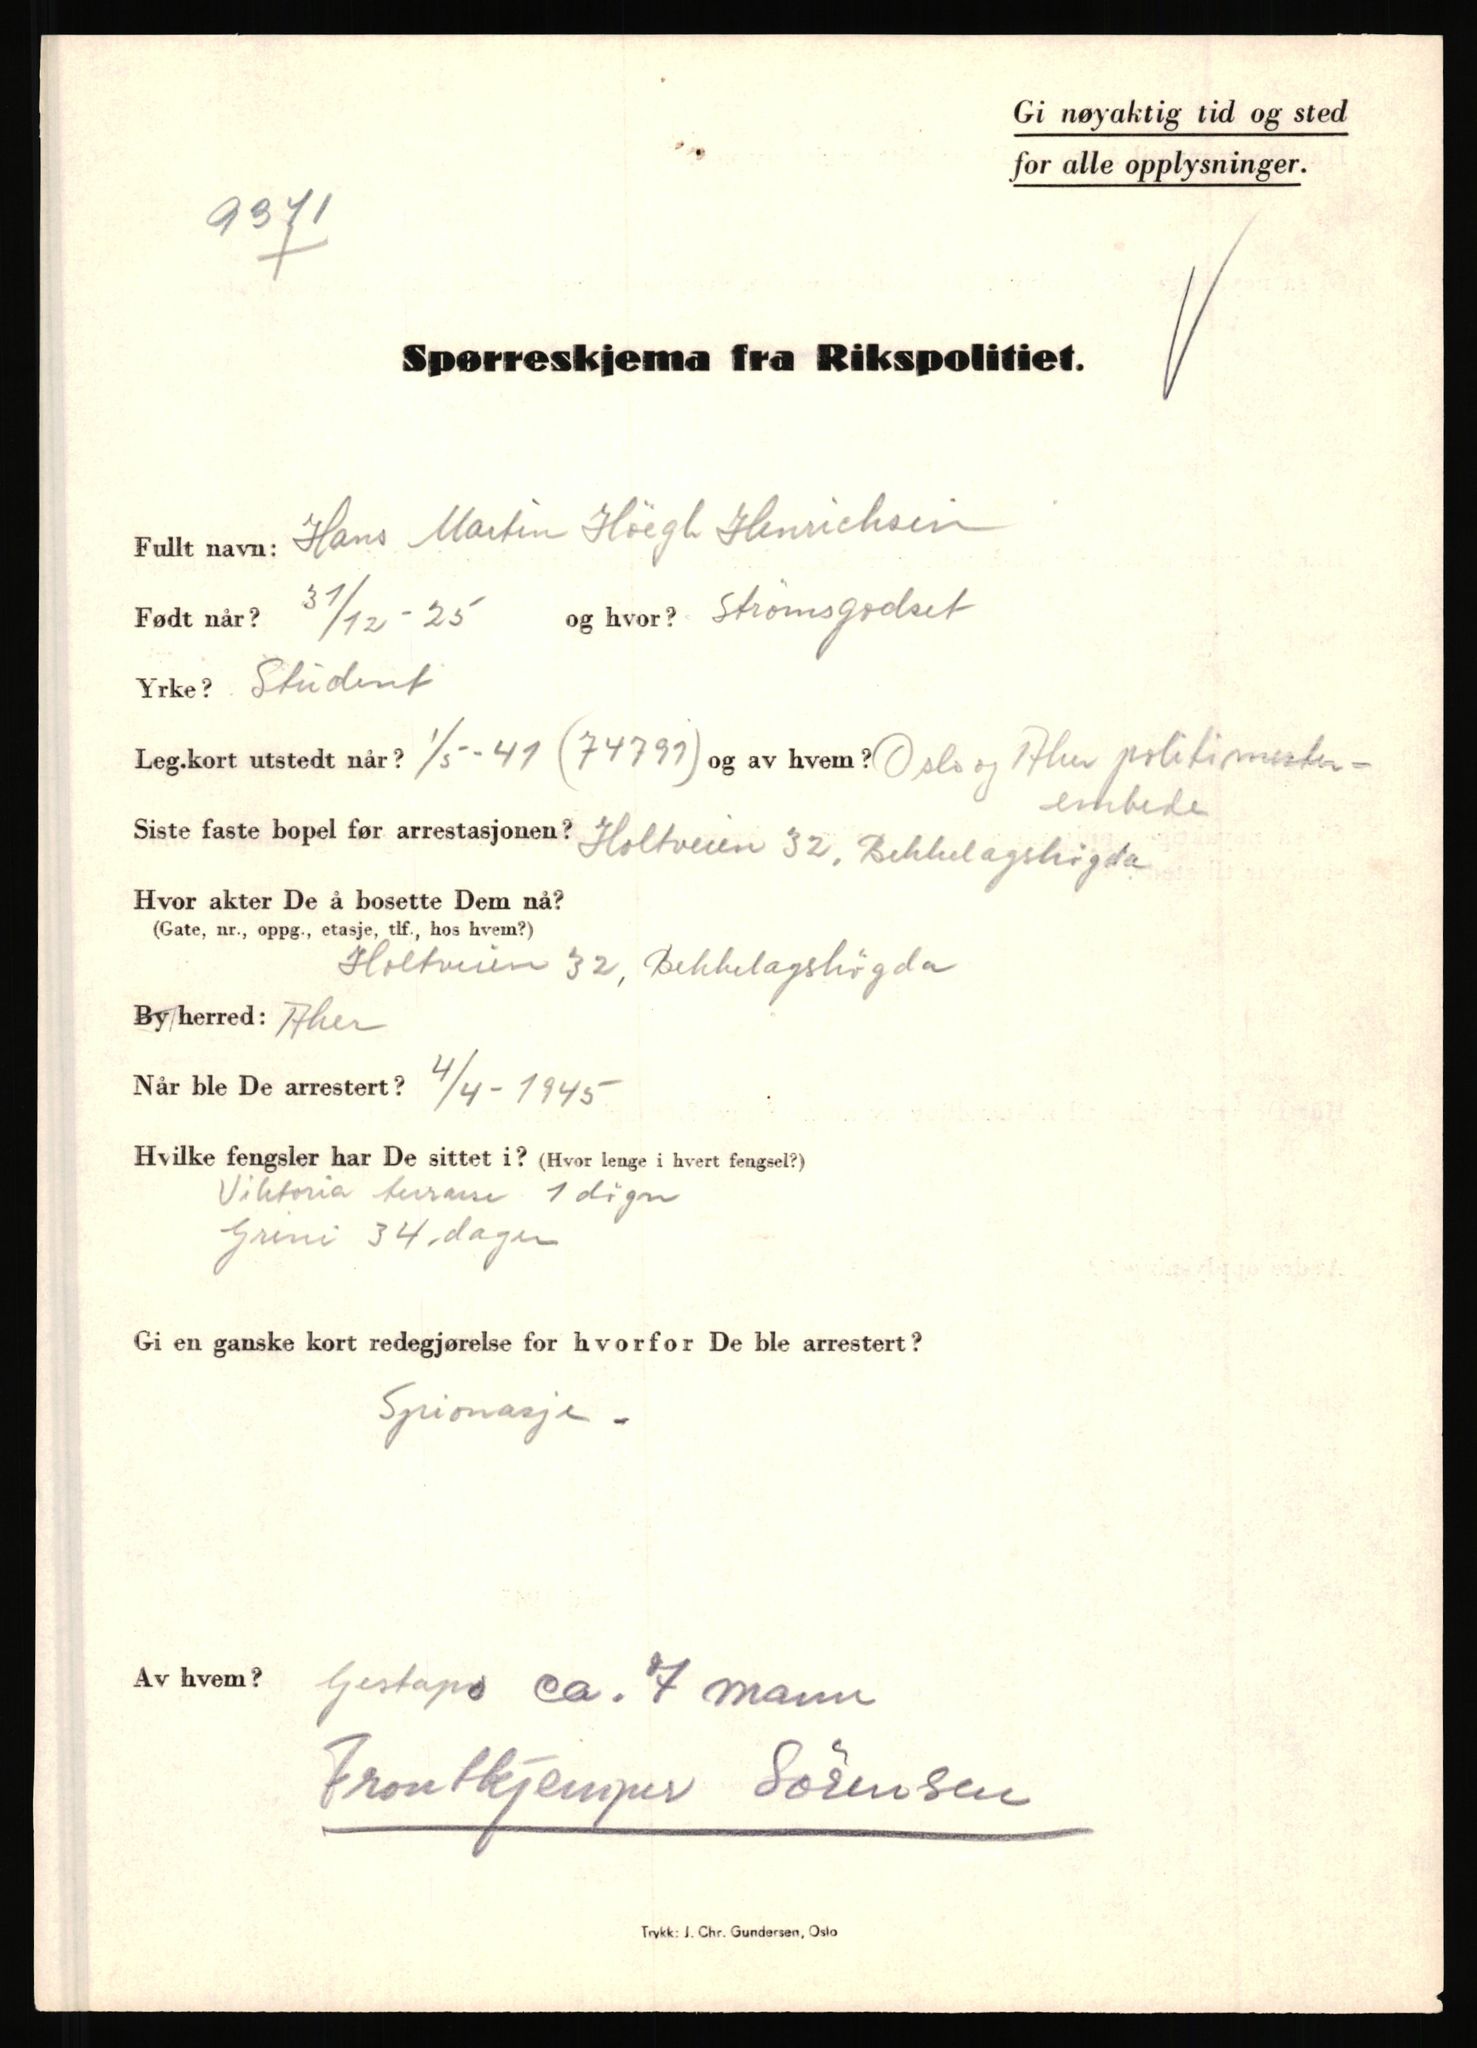 Gi nøyaktig tid og sted
for alle opplysninger.
9371
Spørreskjema fra Rikspolitiet.
Fullt navn: Hans Martin Höegh Henrichsen
Født når? 31/12-25 og hvor? Strömsgodset
Yrke? Student
Leg.kort utstedt når? 1/5-41 (74791) og av hvem? Oslo og Aker politimester-
embede
Siste faste bopel før arrestasjonen? Holtveien 32, Bekkelagshögda
Hvor akter De å bosette Dem nå?
(Gate, nr., oppg., etasje, tlf., hos hvem?)
Holtveien 32, Bekkelagshögda
By/herred: Aker
Når ble De arrestert? 4/4-1945
Hvilke fengsler har De sittet i? (Hvor lenge i hvert fengsel?)
Viktoria terrasse 1 dögn
Grini 34 dager
Gi en ganske kort redegjørelse for hvorfor De ble arrestert?
Spionasje -
Av hvem? Gestapo ca. 7 mann
Frontkjemper Sörensen
Trykk: J. Chr. Gundersen, Oslo